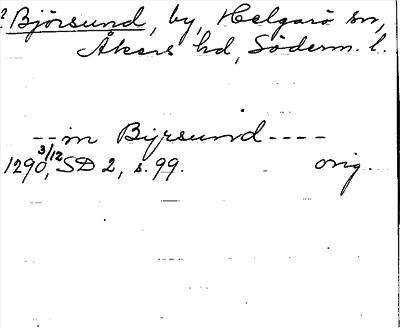 ? Björsund, by, Helgarö sn,
Åkers hd, Söderm. l.
--in Byrsund----
1290 3/12, SD 2, s. 99. orig.